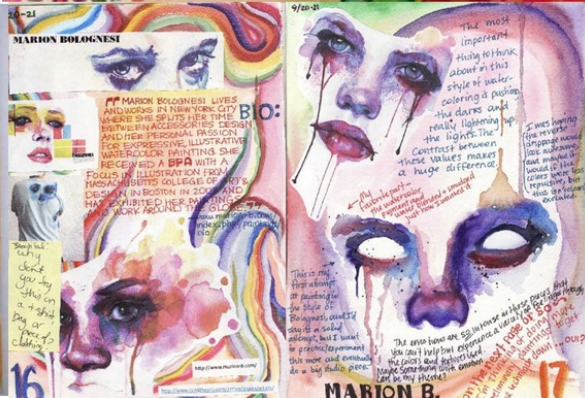 20-21
MARION BOLOGNESI
MARION BOLOGNESI LIVES
AND WORKS IN NEW YORK CITY
WHERE SHE SPLITS HER TIME
BETWEEN ACCESSORIES DESIGN
AND HER PERSONAL PASSION
FOR EXPRESSIVE, ILLUSTRATIVE
WATERCOLOR PAINTING. SHE
RECEIVED A BFA WITH A
FOCUS IN ILLUSTRATION FROM
MASSACHUSETTS COLLEGE OF ART &
DESIGN IN BOSTON IN 2004 AND
HAS EXHIBITED HER PAINTING
AND WORK AROUND THE GLOBE
BIO:
why
don't
you try
this on
a t-shirt
bag or
piece of
clothing
16
9/20-21
The most
important
thing to think
about in this
style of water-
coloring is pushing
the darks and
really lightening up
the lights. The
contrast between
these values makes
a huge difference.
I was hoping
the reverse
drippage would
look awesome
and maybe it
would if the
colors were less
My
favorite part-
the watercolor
pigment and
water blended & smudged
just how I wanted it
This is my
first attempt
at painting in
the style of
Bolognesi and I'd
say it's a solid
attempt, but I want
to practice/experiment
this more and eventually
do a big studio piece.
The emotions are so intense in these pieces that
you can't help but experience a variety of feelings through
the colors and textures used.
Maybe something with emotion
can be my theme?
on the next page or so
17
MARION B.